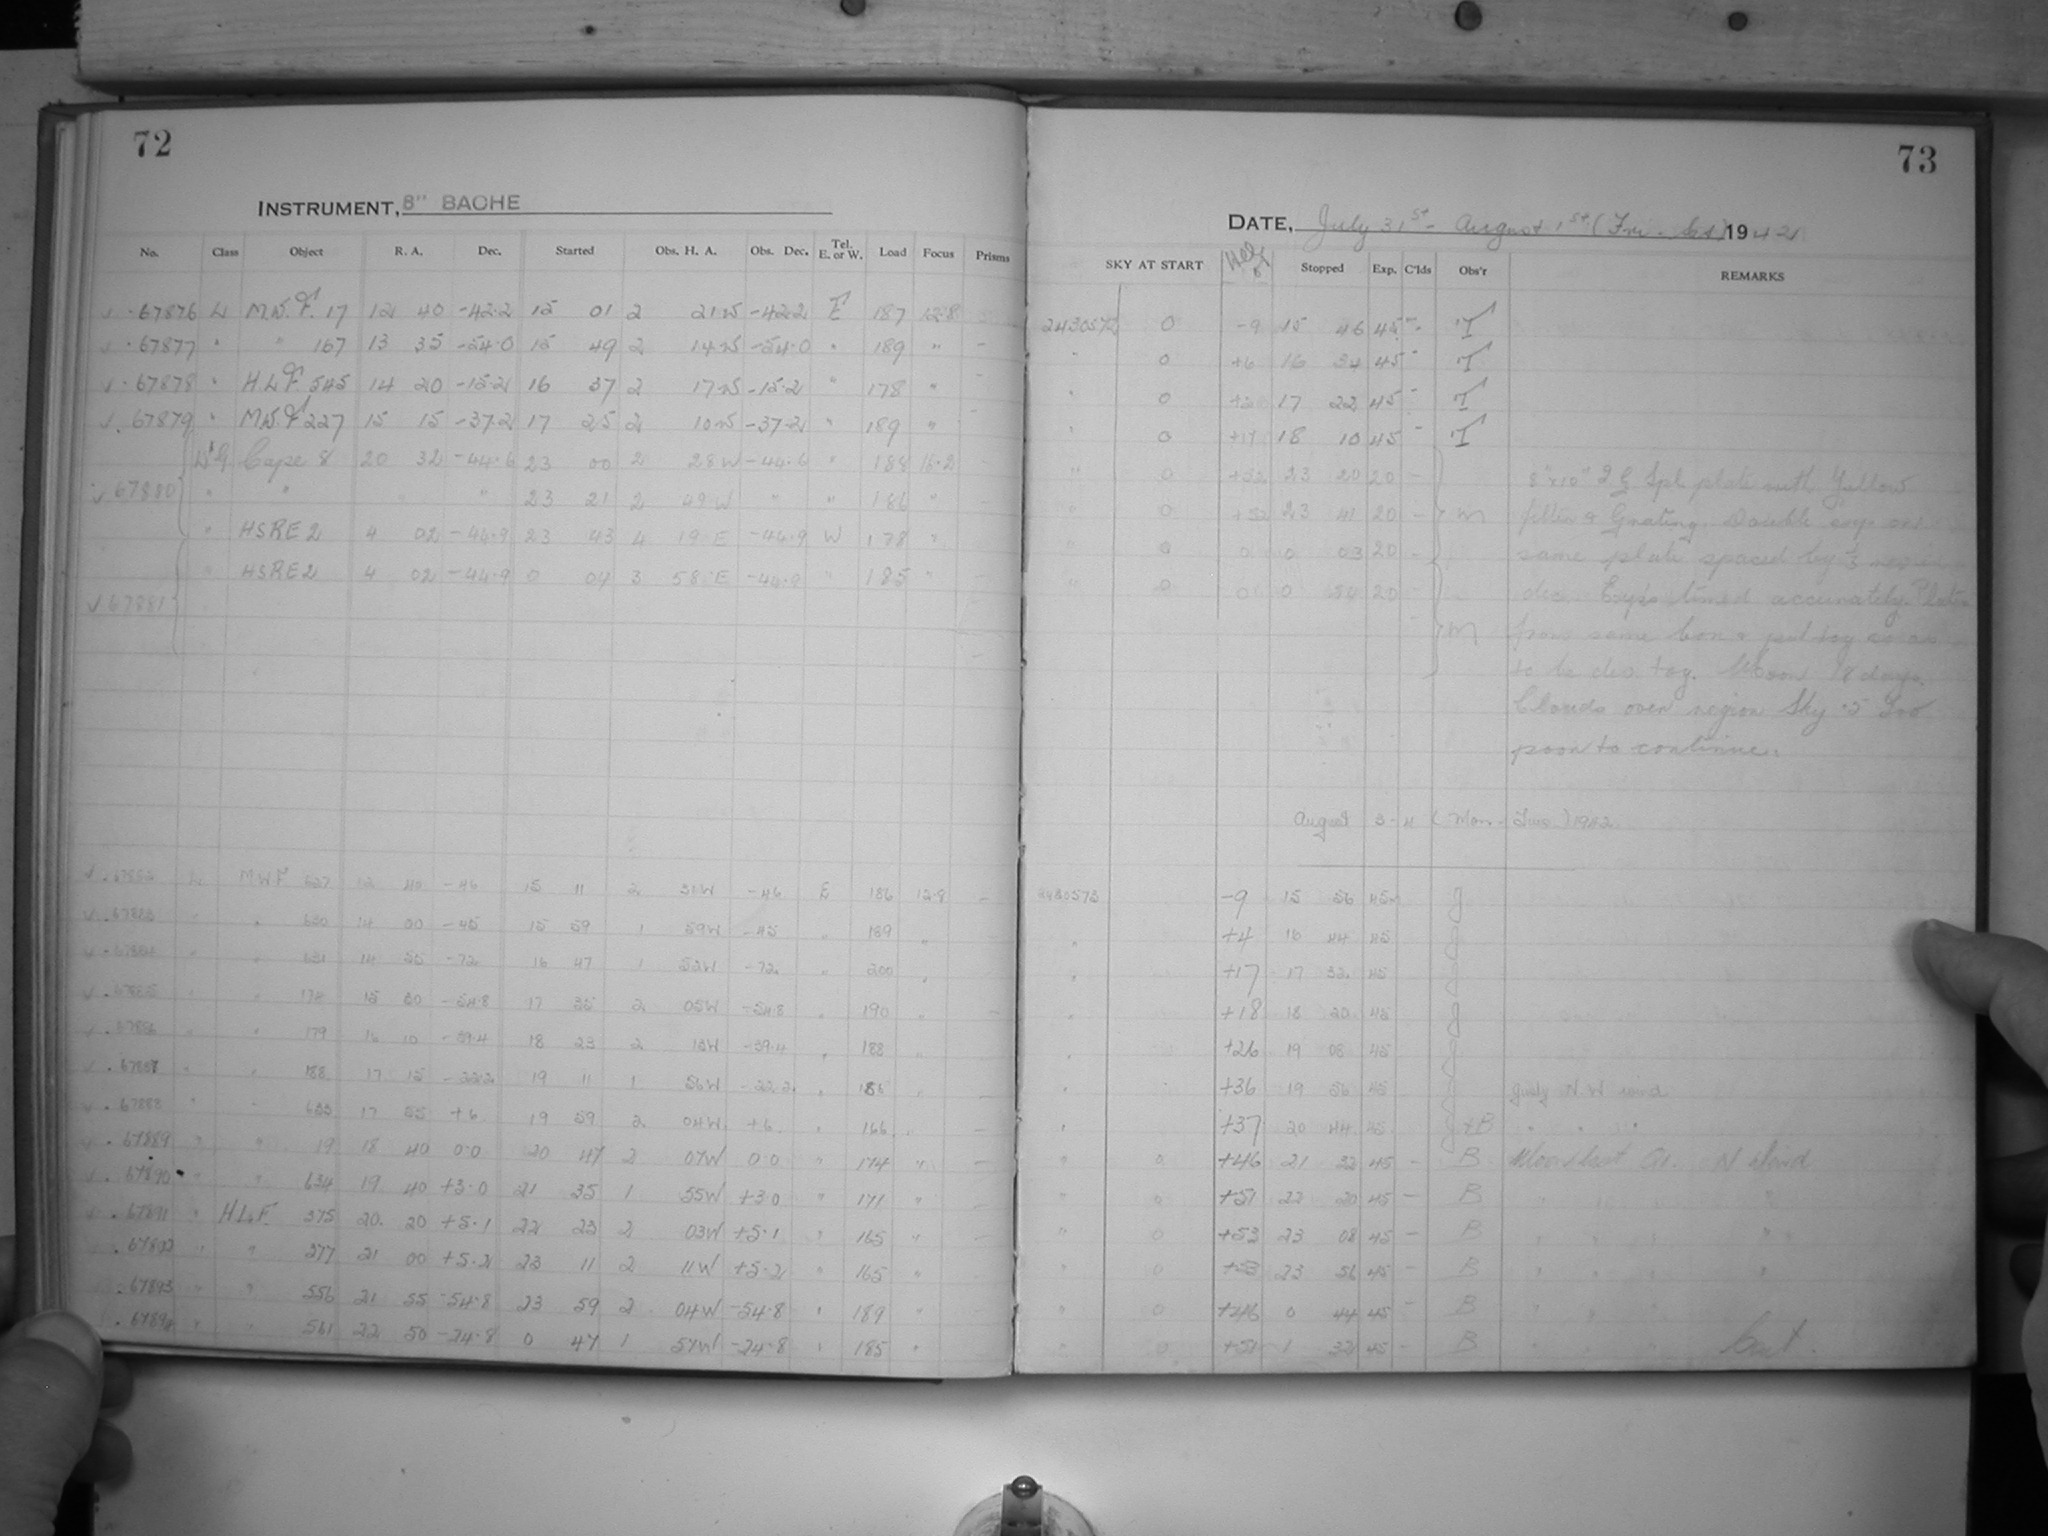 72
INSTRUMENT, 8" BACHE
No. Class Object R. A. Dec. Started Obs. H. A. Obs. Dec. Tel. E. or W. Load Focus Prisms
67876 L M.W.F. 17 12 40 -42.2 15 01 2 21 W -42.2 E 187 12.8
67877 " " 167 13 35 -54.0 15 49 2 14 W -54.0 " 189 " -
67878 " H.L.F. 545 14 20 -15.2 16 37 2 17 W -15.2 " 178 " -
67879 " M.W.F. 227 15 15 -37.2 17 25 2 10 W -37.2 " 189 " -
Cape 8 20 32 -44.6 23 00 2 28 W -44.6 " 188
67880 " " " " 23 21 2 49 W " " 186 "
" HSRE 2 4 02 -44.9 23 43 4 19 E -44.9 W 178 "
" HSRE 2 4 02 -44.9 0 04 3 58 E -44.9 " 185 " -
67881
67882 L MWF 627 12 40 -46 15 11 2 31W -46 E 186 12.8 -
67883 " " 630 14 00 -45 15 59 1 59W -45 " 189 "
67884 " " 631 14 55 -72 16 47 1 52W -72 " 200 "
67885 " " 174 15 30 -54.8 17 35 2 05W -54.8 " 190 " -
67886 " " 179 16 10 -39.4 18 23 2 13W -39.4 " 188 "
67887 " " 188 17 15 -22.2 19 11 1 56W -22.2 " 185 " -
67888 " " 633 17 55 +6 19 59 2 04W +6 " 166 " -
67889 " " 19 18 40 0.0 20 47 2 07W 0.0 " 174 " -
67890 " " 634 19 40 +3.0 21 35 1 55W +3.0 " 171 " -
67891 " H.L.F. 375 20 20 +5.1 22 23 2 03W +5.1 " 165 " -
67892 " " 377 21 00 +5.2 23 11 2 11W +5.2 " 165 "
67893 " " 556 21 55 -54.8 23 59 2 04W -54.8 " 189 "
67894 " " 561 22 50 -24.8 0 47 1 57W -24.8 " 185 "
73
DATE, July 31st - August 1st (Fri - Sat) 1942
SKY AT START Stopped Exp. C'lds Obs'r REMARKS
2430572 0 -9 15 46 45 - T
" 0 +6 16 34 45 - T
" 0 17 22 45 - T
" 0 +17 18 10 45 - T
" 0 23 20 20 - 8"x10" Spl plate with Yellow
" 0 23 41 20 - m filter & Grating. Double exp. on
" 0 0 0 03 20 - same plate spaced by
" 0 0 20 - dec. Exps timed accurately. Plates
m from same box & put tog so as
to be dev. tog. Moon 18 days.
Clouds over region Sky .5 Too
poor to continue.
August 3-4 (Mon - Tues) 1942
2430573 -9 15 56 45 - J
" +4 16 44 45 J
" +17 17 32 45 J
" +18 18 20 45 J
" +26 19 08 45 J
" +36 19 56 45 J Gusty N W wind
" +37 20 44 45 J+B " " "
" 0 +46 21 32 45 - B N Wind
" 0 +51 22 20 45 - B " " " "
" 0 +53 23 08 45 - B " " " "
" 0 +53 23 56 45 - B " " " "
" 0 +46 0 44 45 - B " " "
" 0 +51 1 32 45 - B " " " Cont.